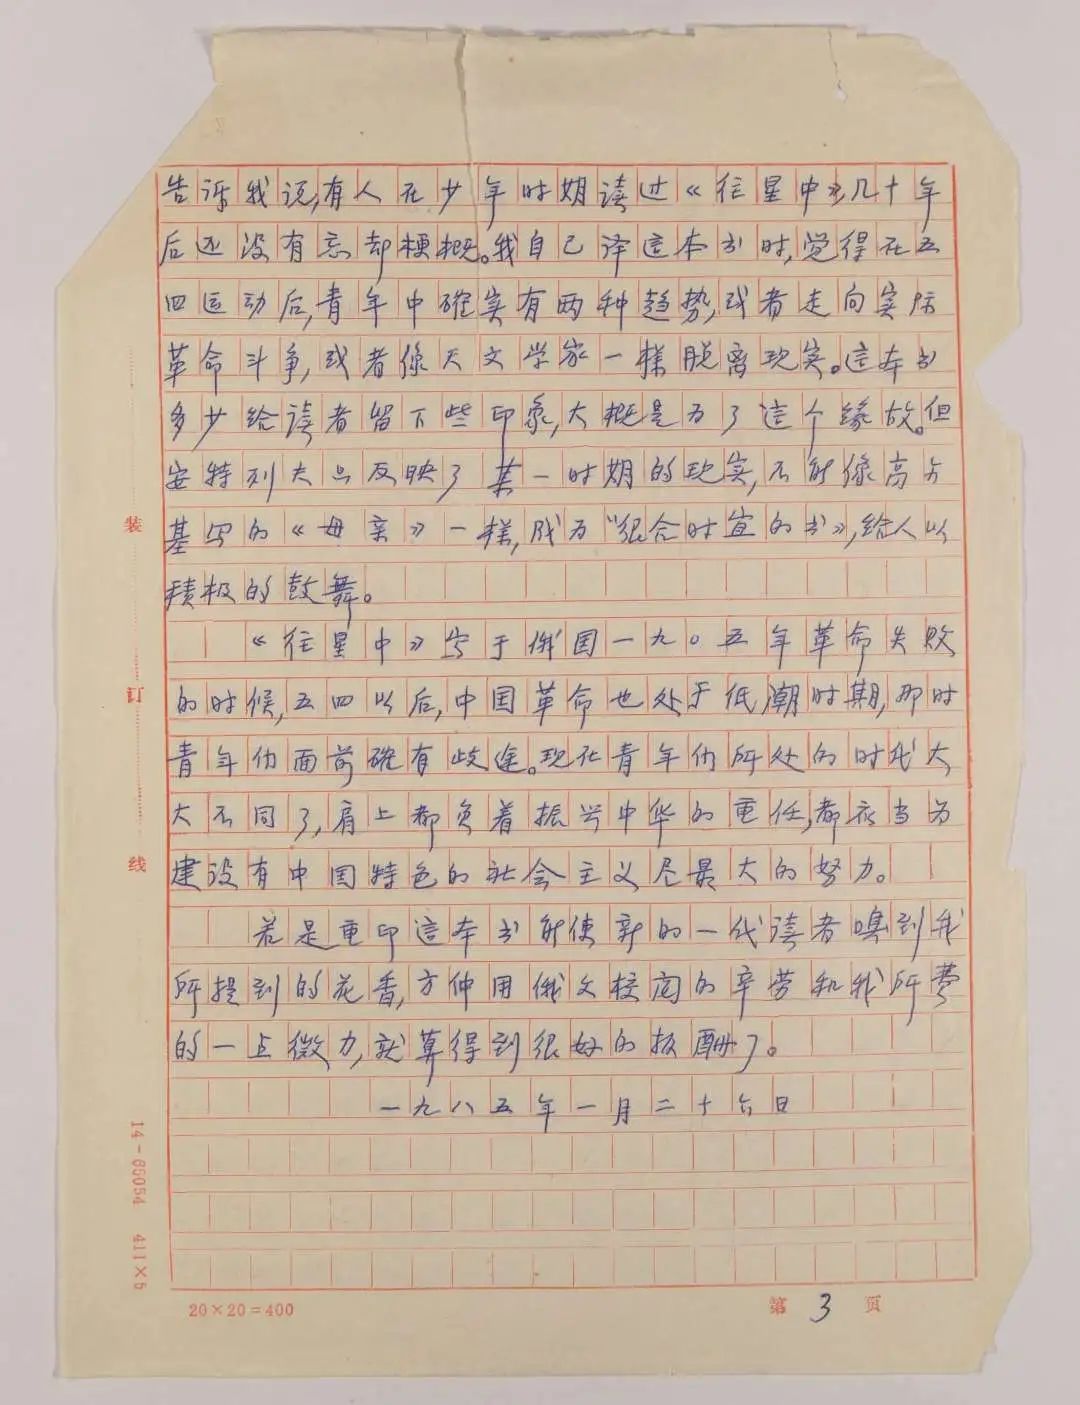 告诉我说,有人在少年时期读过《往星中》,几十年
后还没有忘却梗概。我自己译这本书时,觉得在五
四运动后,青年中确实有两种趋势,或者走向实际
革命斗争,或者像天文学家一样脱离现实。这本书
多少给读者留下些印象,大概是为了这个缘故。但
安特列夫只反映了某一时期的现实,不能像高尔
基写的《母亲》一样,成为"很合时宜的书》,给人以
积极的鼓舞。
《往星中》写于俄国一九〇五年革命失败
的时候,五四以后,中国革命也处于低潮时期,那时
青年们面前确有歧途。现在青年们所处的时代大
大不同了,肩上都负着振兴中华的重任,都应当为
建设有中国特色的社会主义尽最大的努力。
若是重印這本书能使新的一代读者嗅到我
所提到的花香,方仲用俄文校阅的辛劳和我所费
的一点微力,就算得到很好的报酬了。
一九八五年一月二十六日
装
订
线
14-65054 411×5
20×20=400
第 3 页